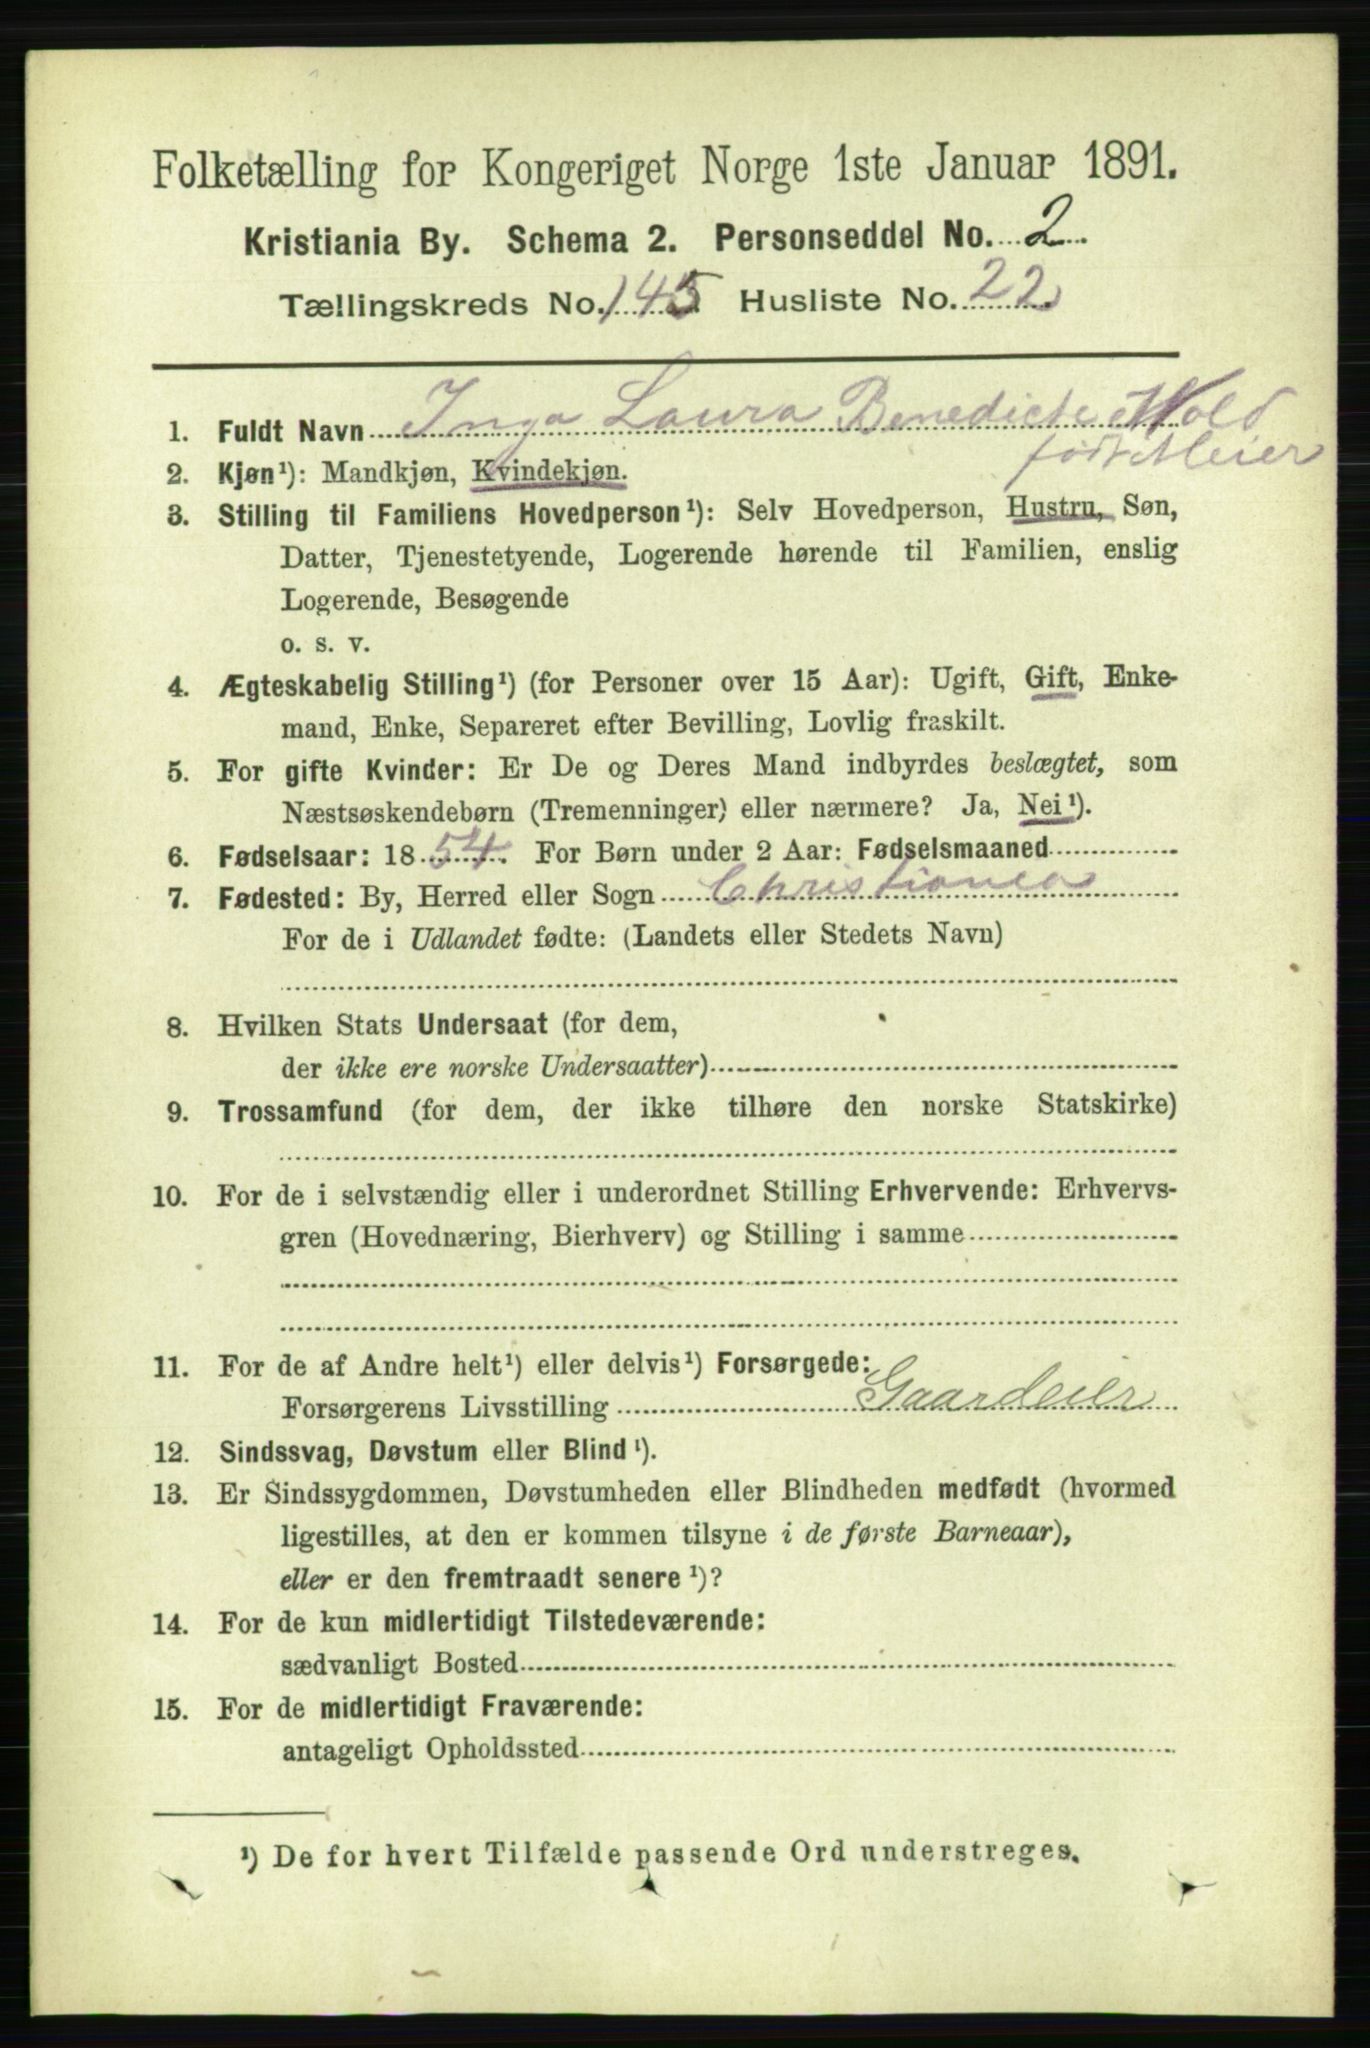 Folketælling for Kongeriget Norge 1ste Januar 1891.
Kristiania By. Schema 2. Personseddel No. 2
Tællingskreds No. 145 Husliste No. 22
1. Fuldt Navn Inga Laura Benedicte Wold
født Meier
2. Kjøn¹): Mandkjøn, Kvindekjøn.
3. Stilling til Familiens Hovedperson¹): Selv Hovedperson, Hustru, Søn,
Datter, Tjenestetyende, Logerende hørende til Familien, enslig
Logerende, Besøgende
o. s. v.
4. Ægteskabelig Stilling¹) (for Personer over 15 Aar): Ugift, Gift, Enke-
mand, Enke, Separeret efter Bevilling, Lovlig fraskilt.
5. For gifte Kvinder: Er De og Deres Mand indbyrdes beslægtet, som
Næstsøskendebørn (Tremenninger) eller nærmere? Ja, Nei¹).
6. Fødselsaar: 1854. For Børn under 2 Aar: Fødselsmaaned
7. Fødested: By, Herred eller Sogn Christiania
For de i Udlandet fødte: (Landets eller Stedets Navn)
8. Hvilken Stats Undersaat (for dem,
der ikke ere norske Undersaatter)
9. Trossamfund (for dem, der ikke tilhøre den norske Statskirke)
10. For de i selvstændig eller i underordnet Stilling Erhvervende: Erhvervs-
gren (Hovednæring, Bierhverv) og Stilling i samme
11. For de af Andre helt¹) eller delvis¹) Forsørgede:
Forsørgerens Livsstilling Gaardeier
12. Sindssvag, Døvstum eller Blind¹).
13. Er Sindssygdommen, Døvstumheden eller Blindheden medfødt (hvormed
ligestilles, at den er kommen tilsyne i de første Barneaar),
eller er den fremtraadt senere¹)?
14. For de kun midlertidigt Tilstedeværende:
sædvanligt Bosted
15. For de midlertidigt Fraværende:
antageligt Opholdssted
¹) De for hvert Tilfælde passende Ord understreges.